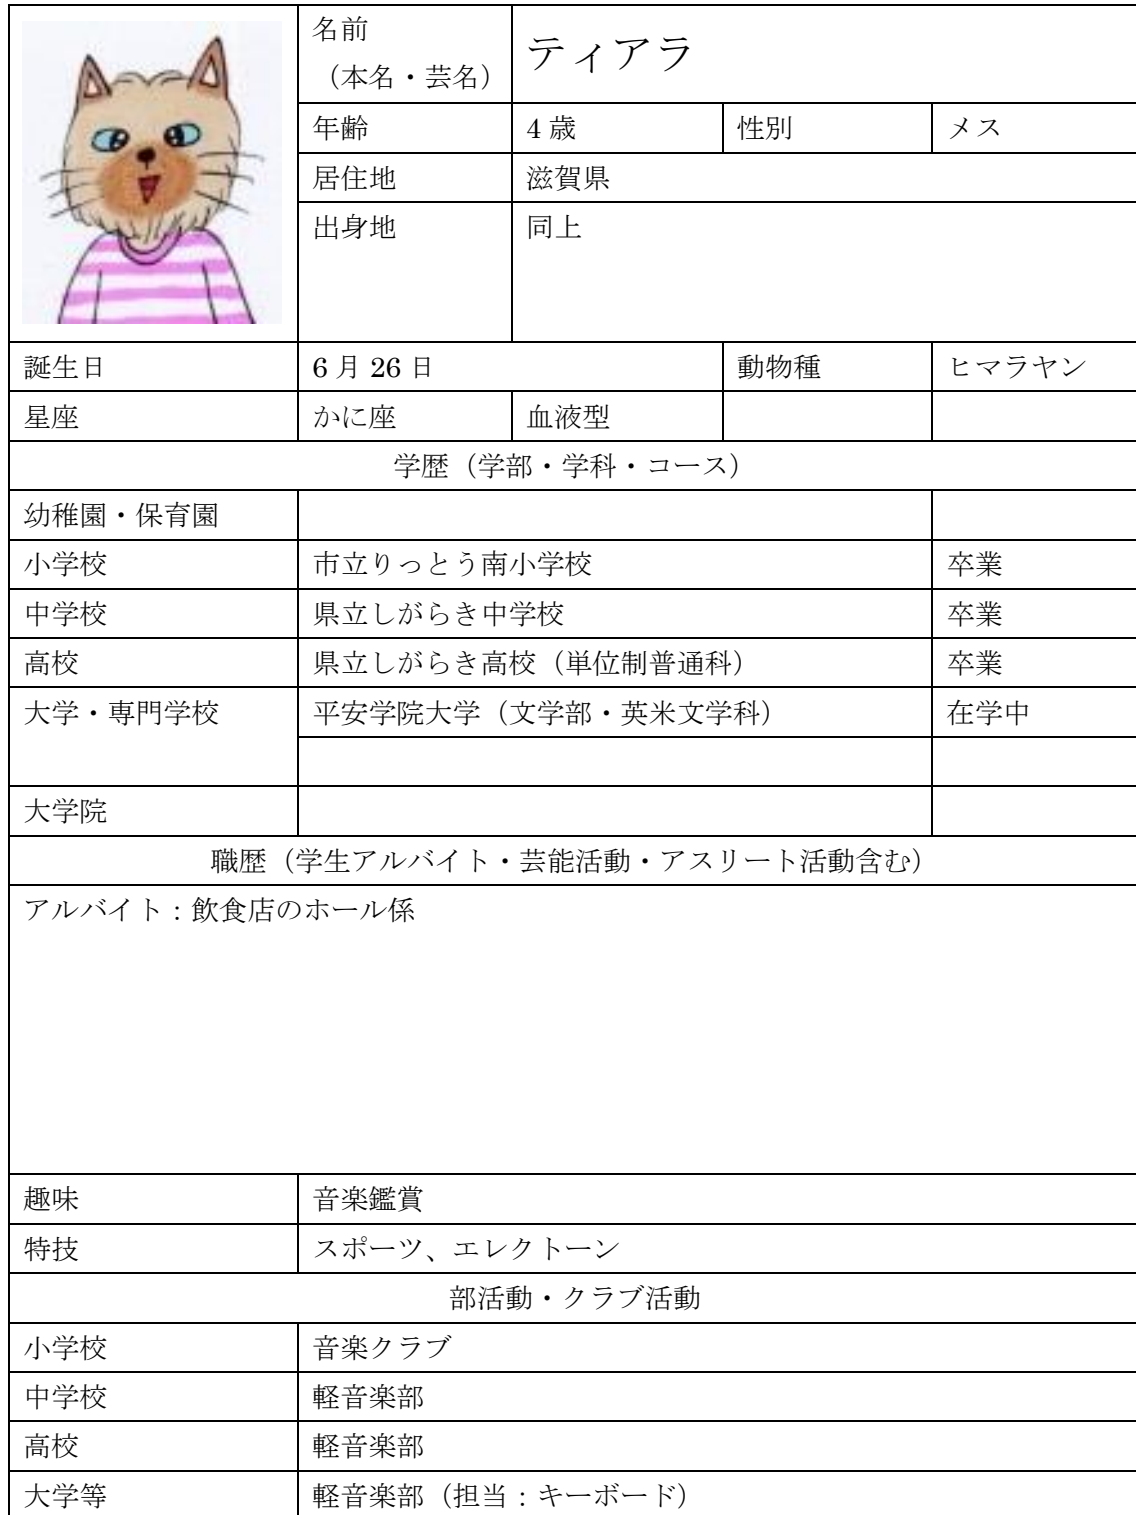 名前
（本名・芸名）
ティアラ
年齢 4 歳 性別 メス
居住地 滋賀県
出身地 同上
誕生日 6 月 26 日 動物種 ヒマラヤン
星座 かに座 血液型
学歴（学部・学科・コース）
幼稚園・保育園
小学校 市立りっとう南小学校 卒業
中学校 県立しがらき中学校 卒業
高校 県立しがらき高校（単位制普通科） 卒業
大学・専門学校 平安学院大学（文学部・英米文学科） 在学中
大学院
職歴（学生アルバイト・芸能活動・アスリート活動含む）
アルバイト：飲食店のホール係
趣味 音楽鑑賞
特技 スポーツ、エレクトーン
部活動・クラブ活動
小学校 音楽クラブ
中学校 軽音楽部
高校 軽音楽部
大学等 軽音楽部（担当：キーボード）